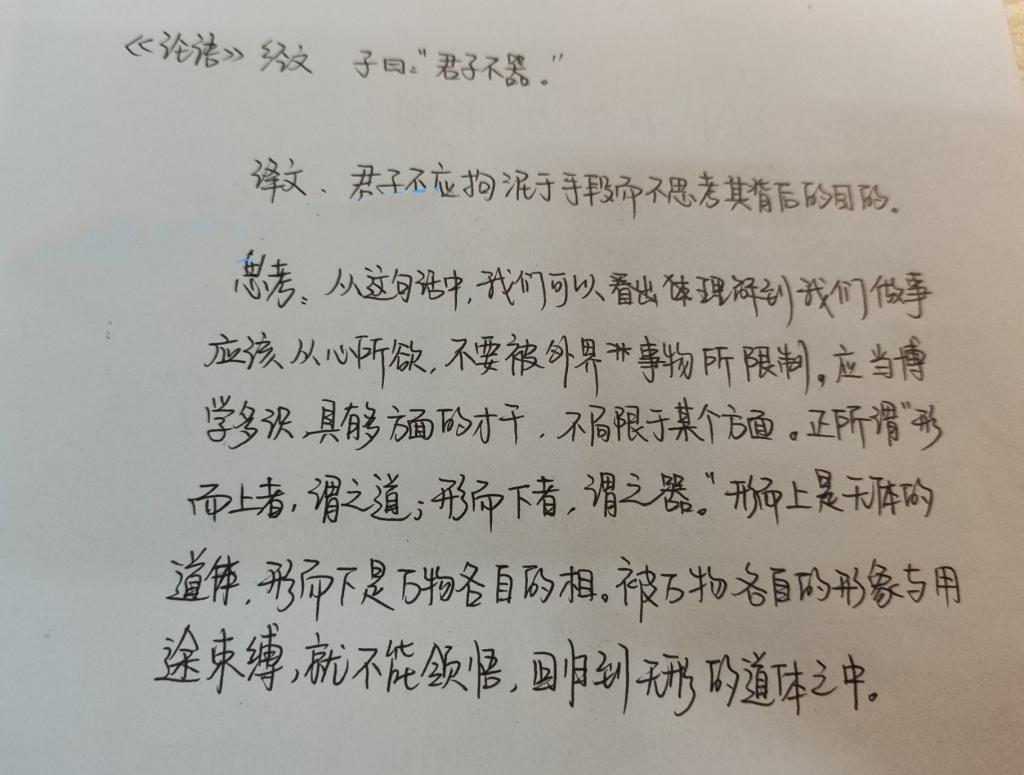 《论语》经文 子曰:“君子不器。”
译文、君子不应拘泥于手段而不思考其背后的目的。
思考:从这句话中,我们可以看出体理解到我们做事
应该从心所欲,不要被外界事物所限制。应当博
学多识,具有多方面的才干,不局限于某个方面。正所谓“形
而上者,谓之道;形而下者,谓之器。”形而上是无体的
道体,形而下是万物各自的相。被万物各自的形象与用
途束缚,就不能领悟,回归到无形的道体之中。